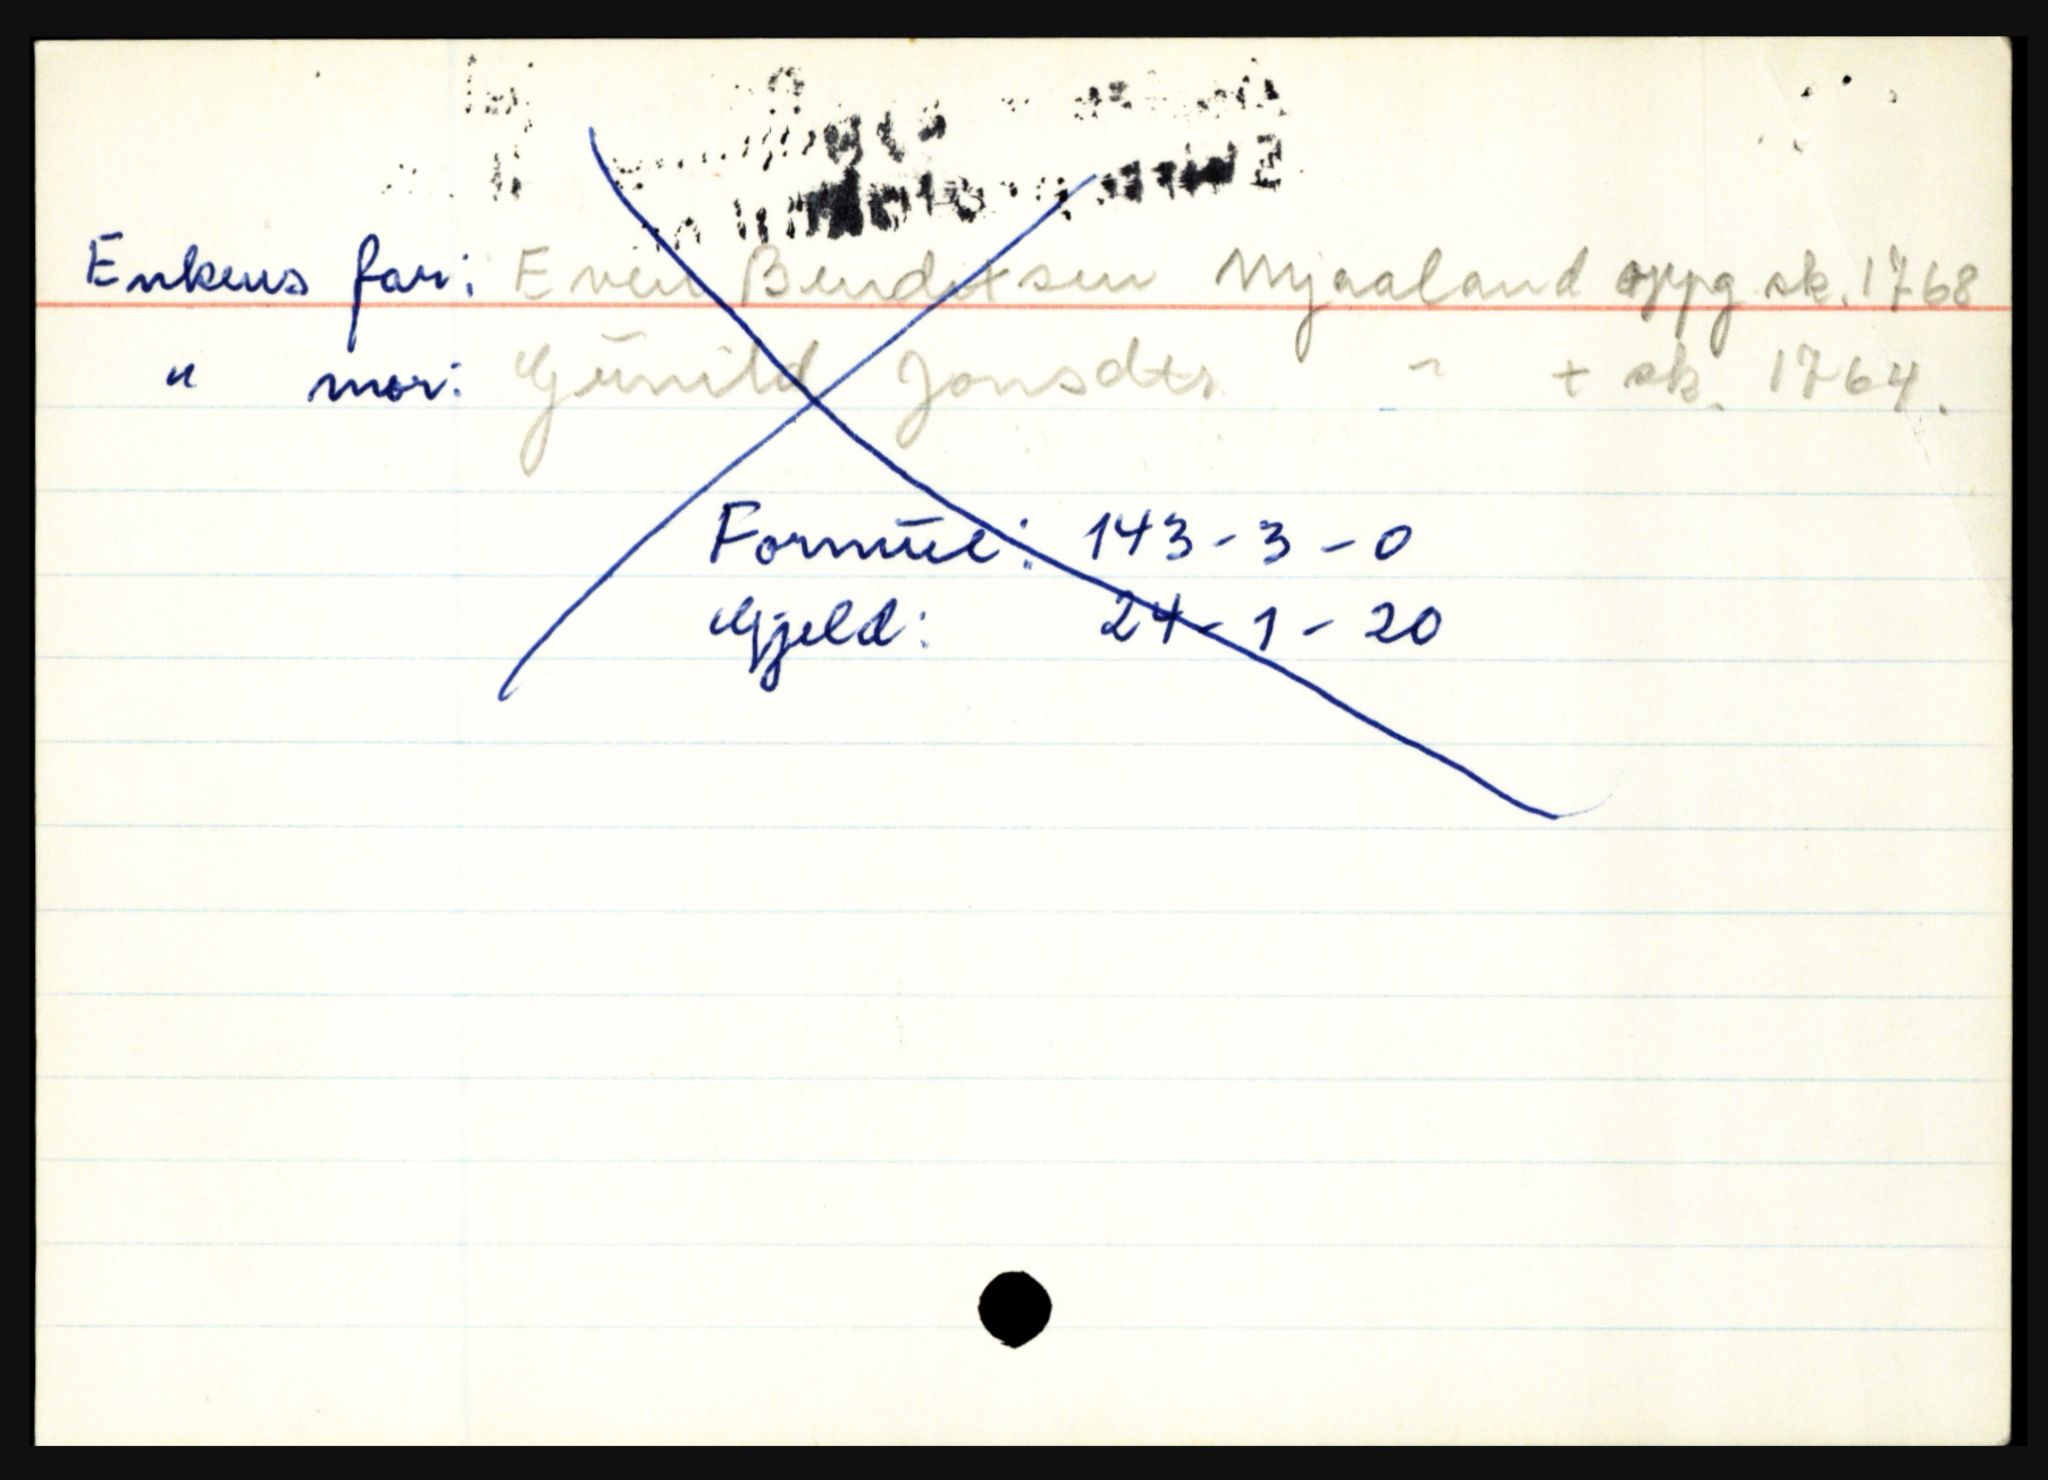 Enkens far: Even Bendixsen Mjaaland oppg sk. 1768
" mor: Gunild Jonsdtr " + sk. 1764.
Formue: 143 - 3 - 0
Gjeld: 24 - 1 - 20